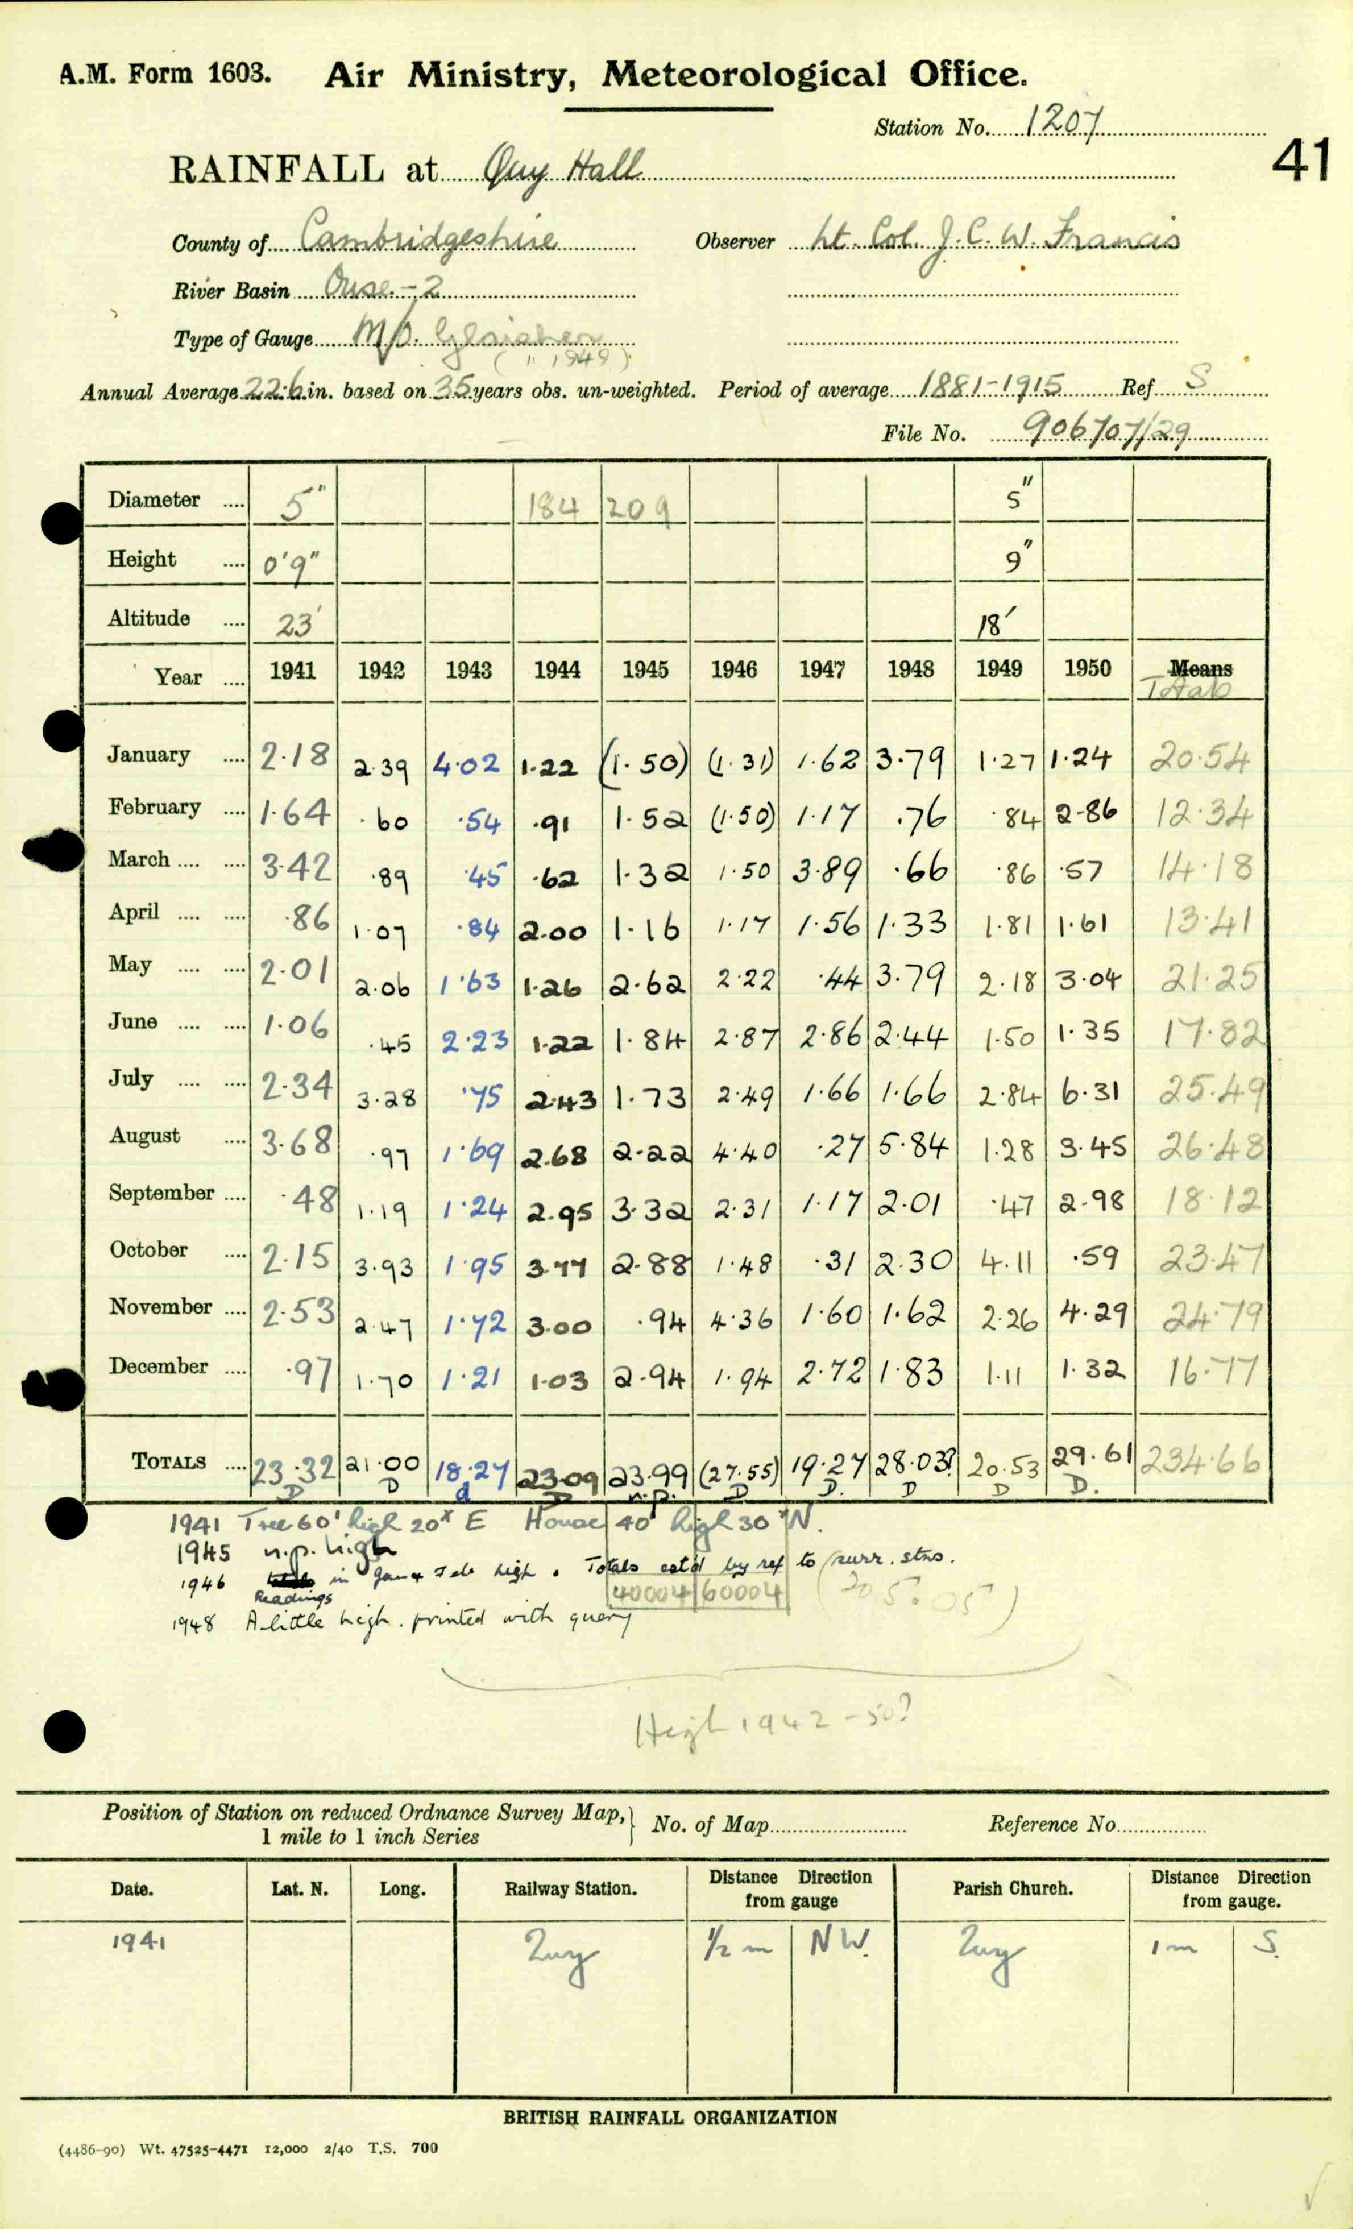 A.M. Form 1603. Air Ministry, Meteorological Office.
Station No. 1207
41
RAINFALL at Quy Hall
County of Cambridgeshire Observer Lt. Col. J.C.W. Francis
River Basin Ouse-2
Type of Gauge M/O. Glaisher
( " 1949)
Annual Average 22.6 in. based on 35 years obs. un-weighted. Period of average 1881-1915 Ref S
File No. 906707/29
Diameter .... 5" 184 209 5"
Height .... 0'9" 9"
Altitude .... 23' 18'
Year .... 1941 1942 1943 1944 1945 1946 1947 1948 1949 1950 Means
Totals
January .... 2.18 2.39 4.02 1.22 (1.50) (1.31) 1.62 3.79 1.27 1.24 20.54
February .... 1.64 .60 .54 .91 1.52 (1.50) 1.17 .76 .84 2.86 12.34
March .... .... 3.42 .89 .45 .62 1.32 1.50 3.89 .66 .86 .57 14.18
April .... .... .86 1.07 .84 2.00 1.16 1.17 1.56 1.33 1.81 1.61 13.41
May .... .... 2.01 2.06 1.63 1.26 2.62 2.22 .44 3.79 2.18 3.04 21.25
June .... .... 1.06 .45 2.23 1.22 1.84 2.87 2.86 2.44 1.50 1.35 17.82
July .... .... 2.34 3.28 .75 2.43 1.73 2.49 1.66 1.66 2.84 6.31 25.49
August .... 3.68 .97 1.69 2.68 2.22 4.40 .27 5.84 1.28 3.45 26.48
September .... .48 1.19 1.24 2.95 3.32 2.31 1.17 2.01 .47 2.98 18.12
October .... 2.15 3.93 1.95 3.77 2.88 1.48 .31 2.30 4.11 .59 23.47
November .... 2.53 2.47 1.72 3.00 .94 4.36 1.60 1.62 2.26 4.29 24.79
December .... .97 1.70 1.21 1.03 2.94 1.94 2.72 1.83 1.11 1.32 16.77
TOTALS .... 23.32 21.00 18.27 23.09 23.99 (27.55) 19.27 28.03? 20.53 29.61 234.66
D D d D n.p. D D. D D D.
1941 Tree 60' high 20x E House 40' high 30x N.
1945 n.p. high
1946 Readings in Jan & Feb high. Totals est'd by ref to surr. stns.
40004 60004
1948 A little high. printed with query
High 1942-50?
Position of Station on reduced Ordnance Survey Map, } No. of Map Reference No.
1 mile to 1 inch Series
Date. Lat. N. Long. Railway Station. Distance Direction from gauge Parish Church. Distance Direction from gauge.
1941 Quy 1/2 m NW. Quy 1 m S.
BRITISH RAINFALL ORGANIZATION
(4486-90) Wt. 47525-4471 12,000 2/40 T.S. 700